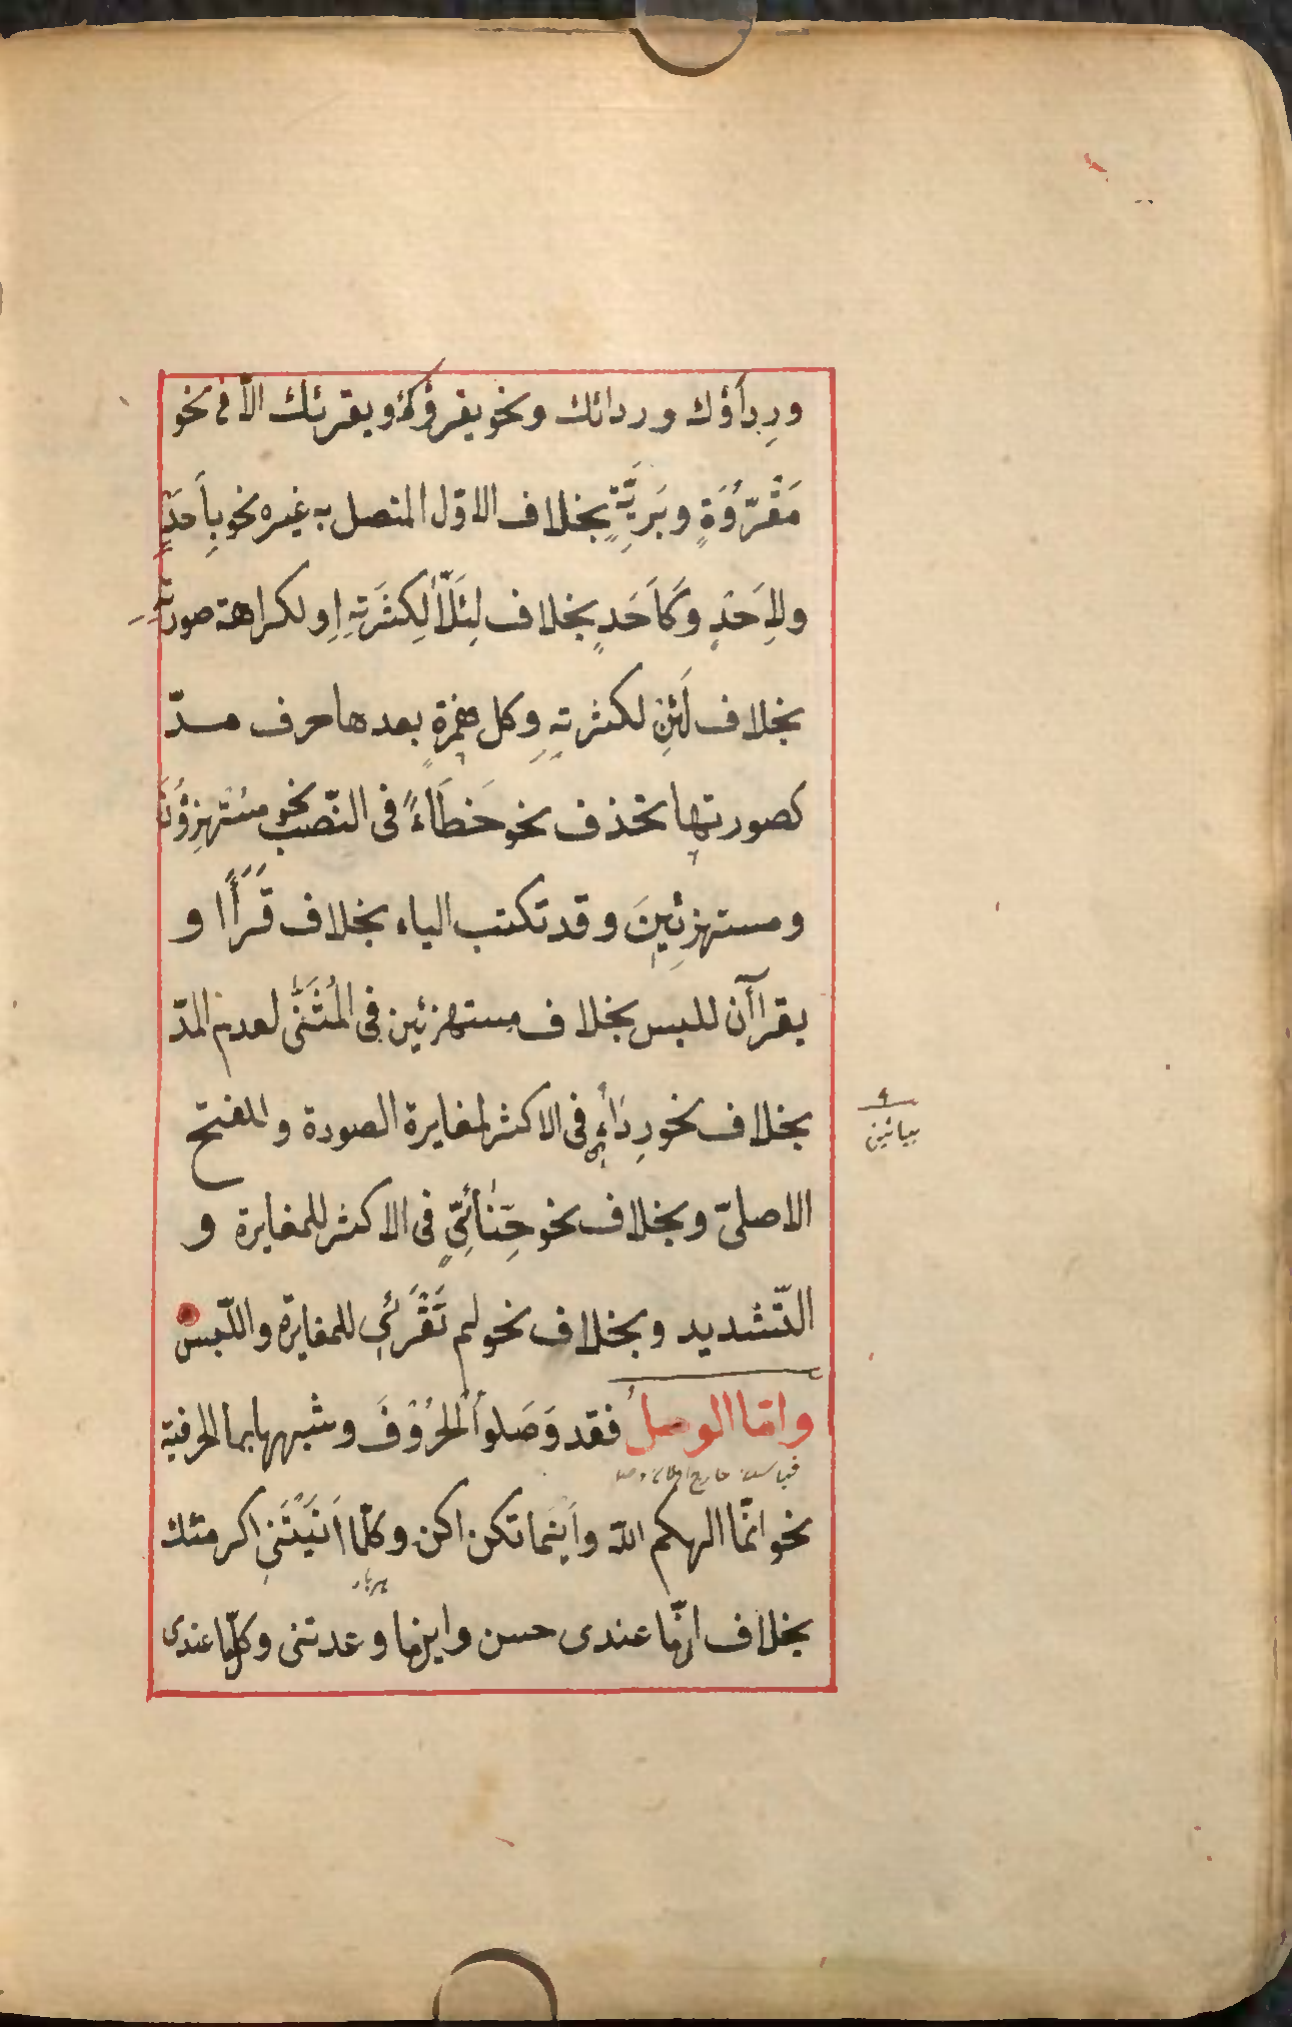 ورِدَاؤك وردائك ونحو يقرؤك ويقرئك الّا فى نحو
مَقْرُوَّةٍ وبَرِيَّةٍ بخلاف الاوّل المتصل به غيره نحو بِاَحَدٍ
ولِاَحَدٍ وكَاَحَدٍ بخلاف لِئَلَّا لِكَثرَتِهِ او لكراهة صورته
بخلاف لَئِن لكثرته وكل همزةٍ بعدها حرف مدّ
كصورتها تحذف نحو خَطَاءً فى النّصب نحو مستهزِؤُنَ
ومستهزئِينَ وقد تكتب الياء بخلاف قَرَأَا و
يقراآن للبس بخلاف مستهزئين فى المُثَنَّى لعدم المدّ
بخلاف نحو رِدَاءِى فى الاكثر لمغايرة الصورة والفتح
الاصلىّ وبخلاف نحو حِنَّائِىٍّ فى الاكثر للمغايرة و
التّشديد وبخلاف نحو لم تَقْرَئِى للمغايرة واللّبس
وامّا الوصلُ فقد وَصَلوا الحُرُوْفَ وشبهها بما الحرفية
نحو انّما الهكم اللّه واَينَما تكن اكن وكلّما اَتَيْتَنِى اكرمتك
بخلاف انّ ما عندى حسن واين ما وعدتنى وكلّ ما عندى
بيائين